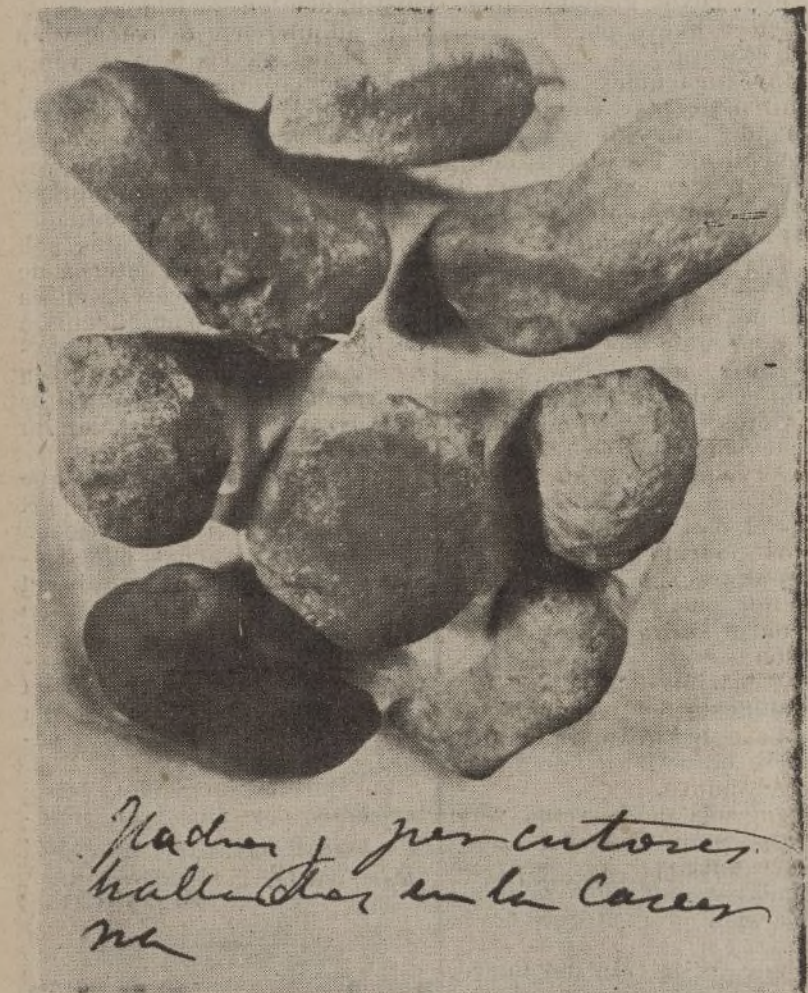 y percutores
hallados en la Caver
na